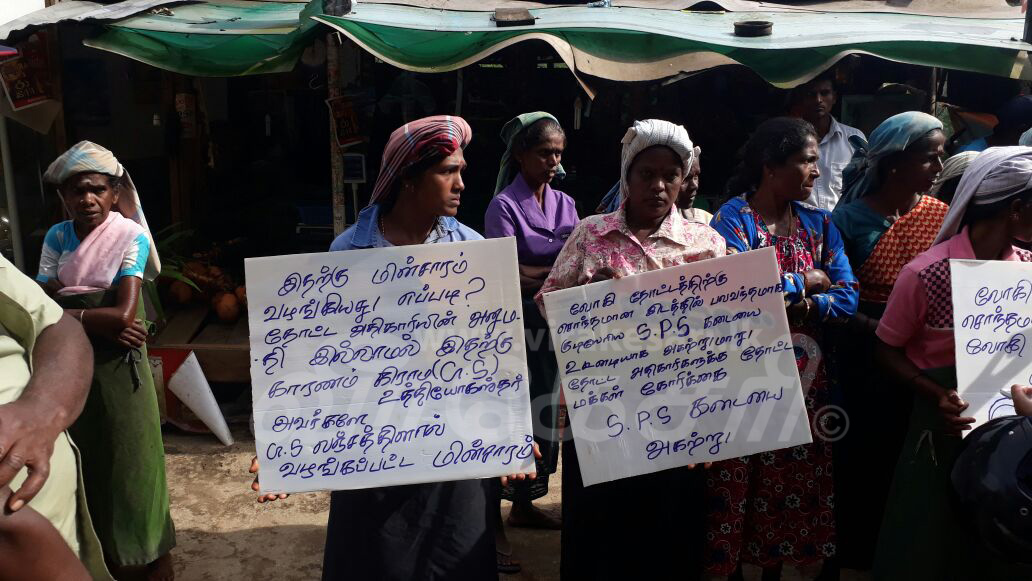 இதற்கு மின்சாரம்
வழங்கியது! எப்படி?
தோட்ட அதிகாரியின் அனும-
-தி இல்லாமல் இதற்கு
காரணம் கிராம (G.S)
உத்தியோகஸ்தர்
அவர்களே
G.S லஞ்சத்தினால்
வழங்கப்பட்ட மின்சாரம்
லோகி தோட்டத்திற்கு
சொந்தமான இடத்தில் பலவந்தமாக
குடியேறிய S.P.S கடையை
உடனடியாக அகற்றுமாறு
தோட்ட அதிகாரிகளுக்கு தோட்ட
மக்கள் கோரிக்கை
S.P.S கடையை
அகற்று!
லோகி
சொந்தம
லோகி